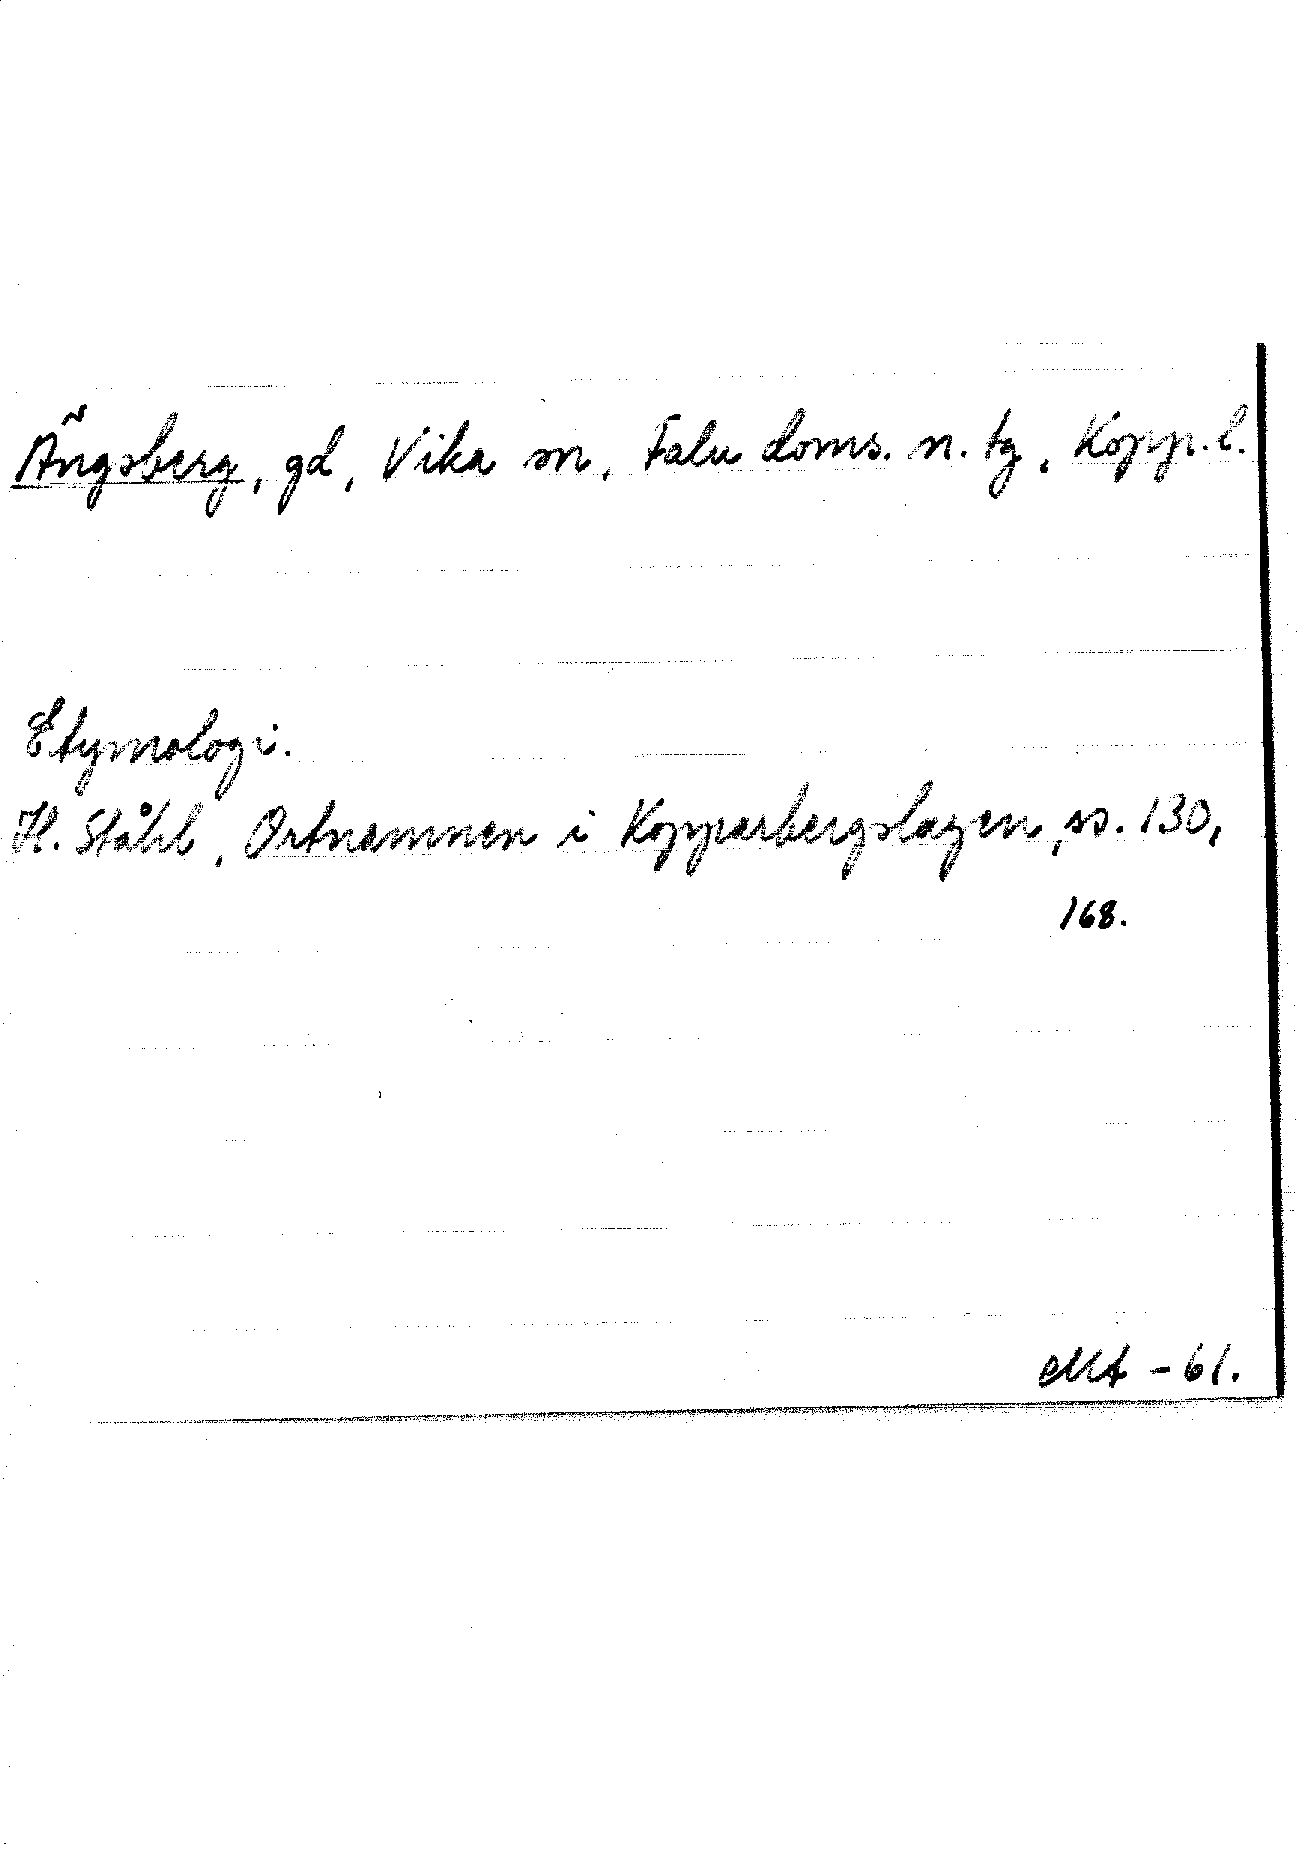 Ängsberg, gd, Vika sn, Falu doms. n. tg, Kopp. l.
Etymologi.
H. Ståhl, Ortnamnen i Kopparbergslagen, ss. 130,
168.
MA - 61.